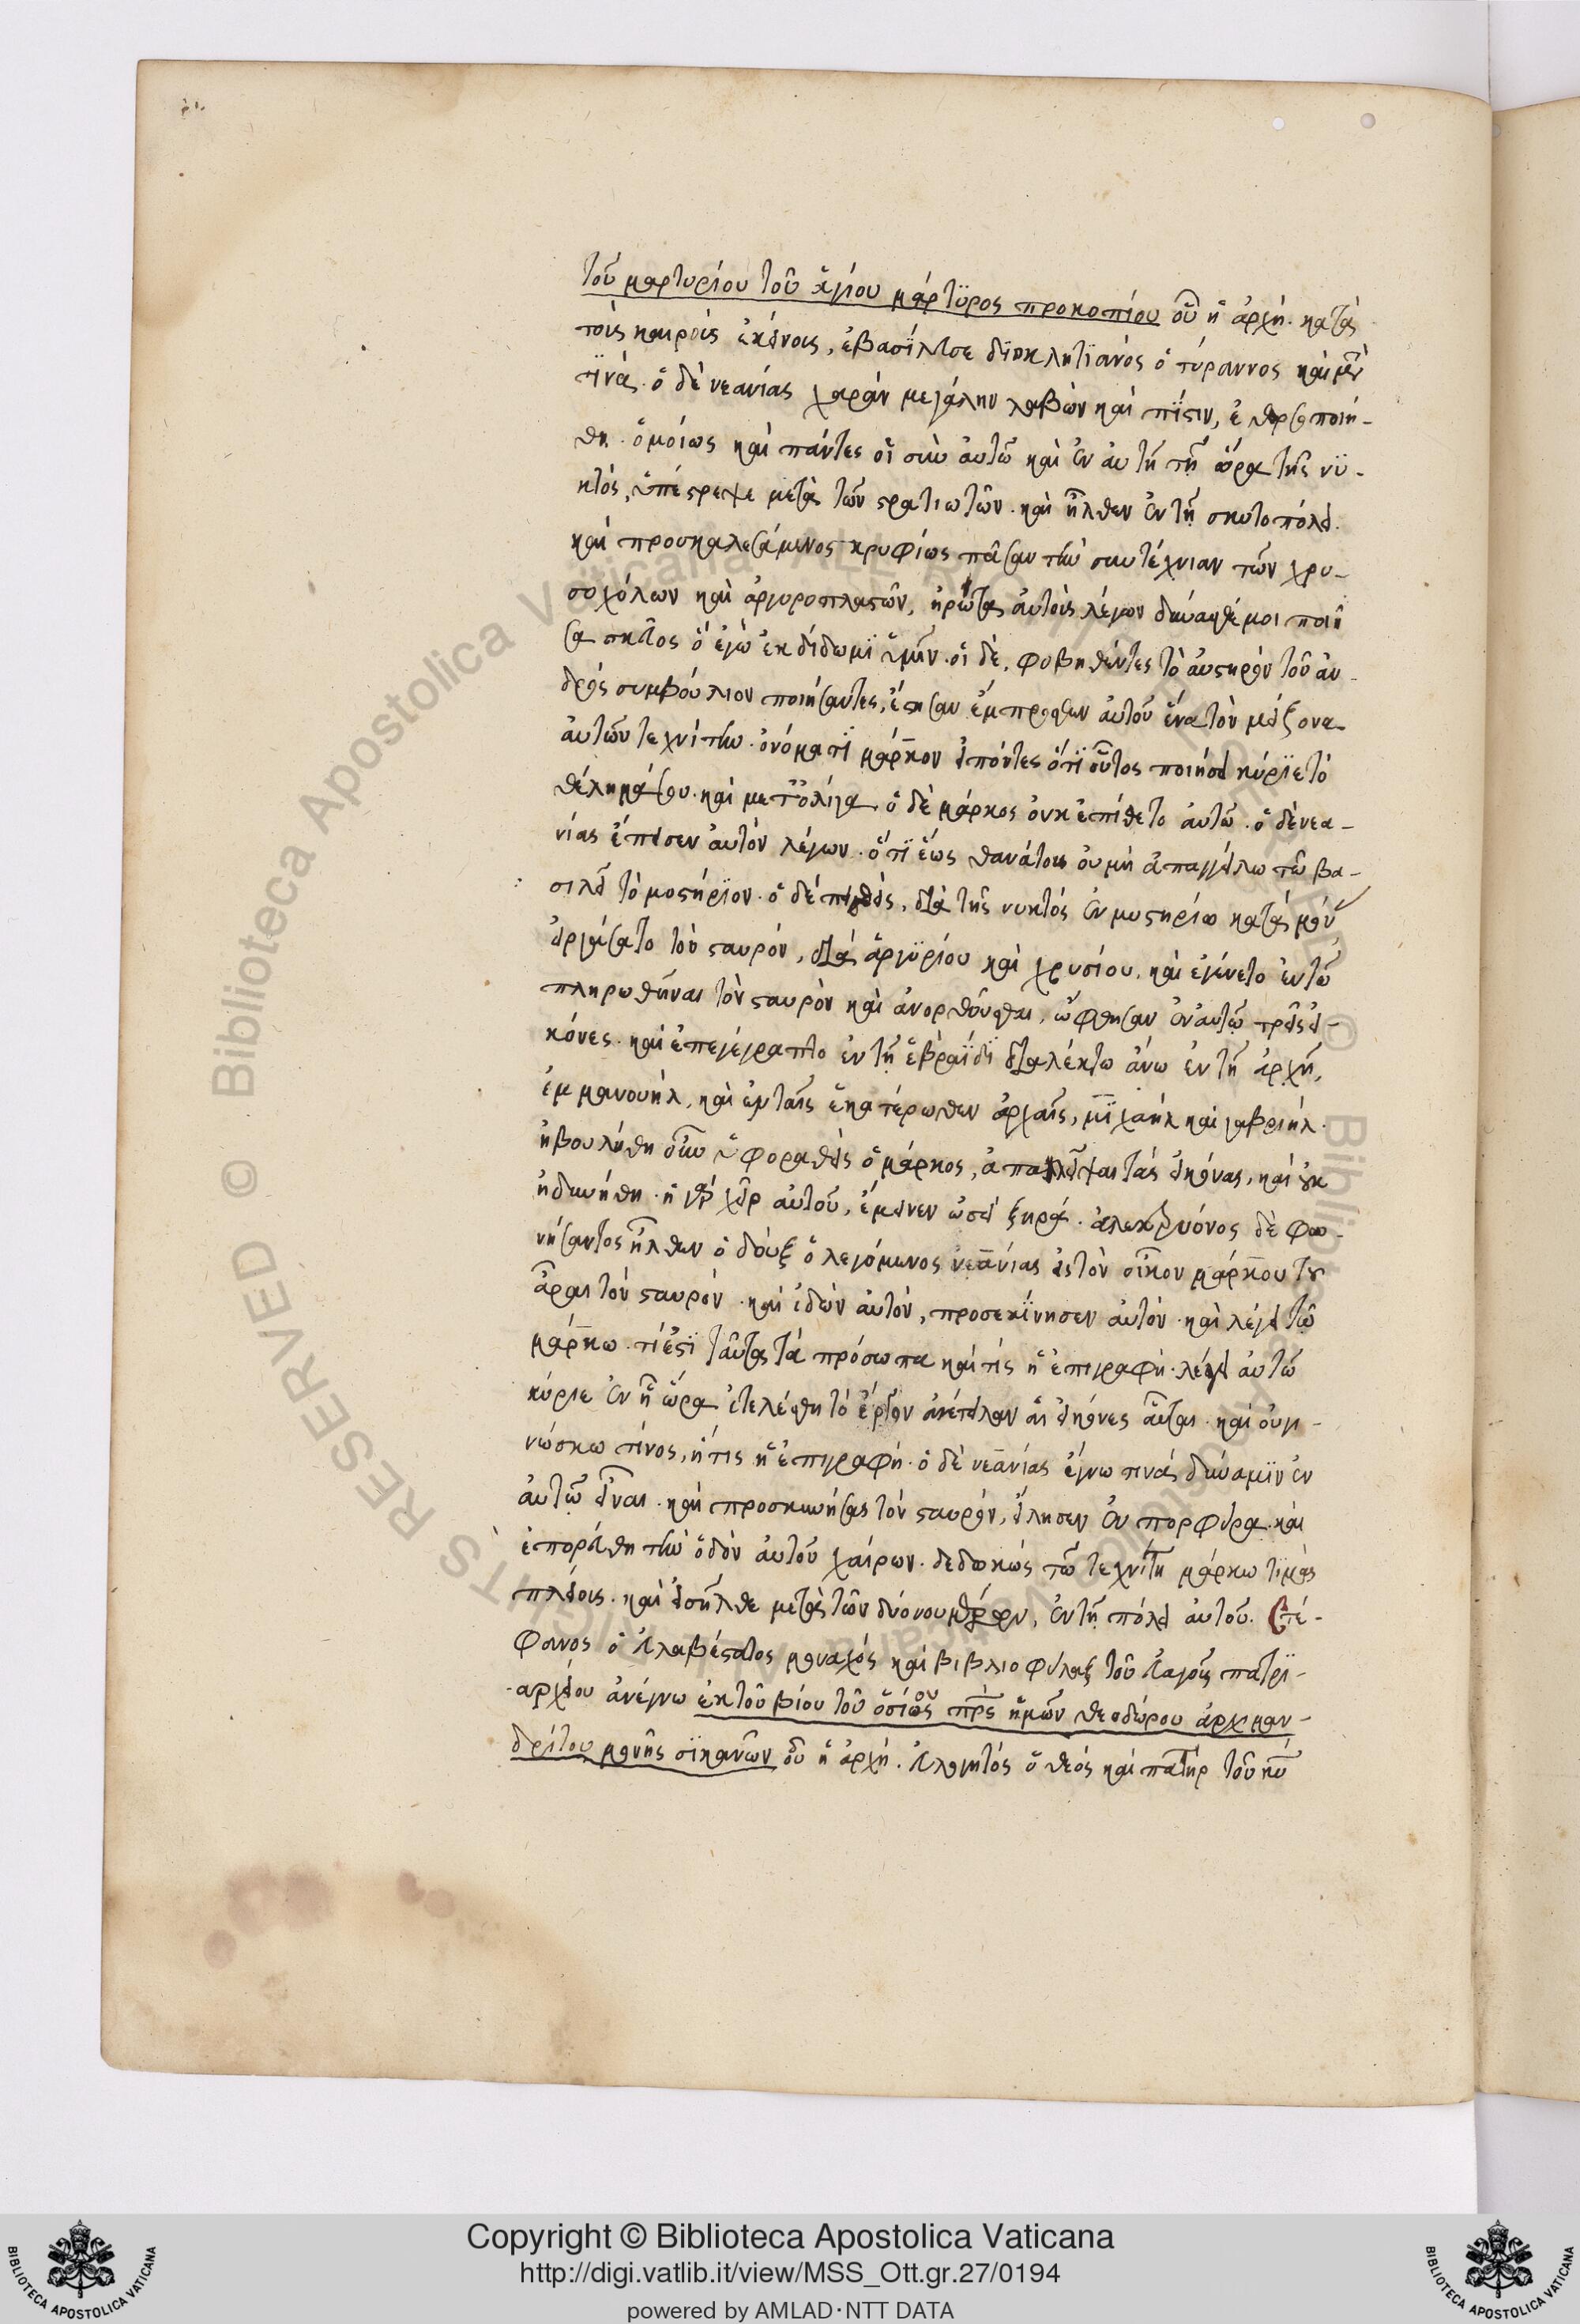 τοῦ μαρτυρίου τοῦ ἁγίου μάρτυρος προκοπίου οὗ ἡ ἀρχή. κατὰ
τοὺς καιροὺς ἐκείνους, ἐβασίλευσε διοκλητϊανὸς ὁ τύραννος καὶ
τϊνά. ὁ δὲ νεανίας χαρὰν μεγάλην λαβὼν καὶ πίστιν, ἐθαρσοποιή-
θη. ὁμοίως καὶ πάντες οἱ σὺν αὐτῶ καὶ ἐν αὐτῆ τῆ ὥρα τῆς νϋ-
κτός, ὑπέστρεψε μετὰ τῶν στρατιωτῶν. καὶ ἦλθεν ἐν τῆ σκυτοπόλει.
καὶ προσκαλεσάμενος κρυφίως πᾶσαν τὴν συντέχνιαν τῶν χρυ-
σοχόων καὶ ἀργυροπλαστῶν, ἠρώτα αὐτοὺς λέγων δύνασθέ μοι ποιῆ
σαι σκεῦος ὃ ἐγὼ ἐκδίδωμϊ ὑμῖν. οἱ δὲ, φοβηθέντες τὸ αὐστηρὸν τοῦ ἀν-
δρός συμβούλιον ποιήσαντες, ἔστησαν ἔμπροσθεν αὐτοῦ ἕνα τὸν μείζονα
αὐτῶν τεχνίτην. ὀνόματϊ μάρκον εἰπόντες ὅτϊ οὗτος ποιήσει κύρϊε τὸ
θέλημά σου. καὶ μετ' ὀλίγα. ὁ δὲ μάρκος οὐκ ἐπίθετο αὐτῶ. ὁ δὲ νεα-
νίας ἔπεισεν αὐτὸν λέγων. ὅτϊ ἕως θανάτου οὐ μὴ ἀπαγγείλω τῶ βα-
σιλεῖ τὸ μοστήρϊον. ὁ δὲ πεισθεὶς, διὰ τῆς νυκτὸς ἐν μυστηρίω κατὰ μόν
εἰργάσατο τὸν σταυρόν, διὰ ἀργϋρίου καὶ χρυσίου. καὶ ἐγένετο ἐν τῶ
πληρωθῆναι τὸν σταυρὸν καὶ ἀνορθοῦσθαι, ὤφθησαν ἐν αὐτῶ τρεῖς εἰ-
κόνες. καὶ ἐπεγέγραπτο ἐν τῆ ἑβραϊδϊ διαλέκτω ἄνω ἐν τῆ ἀρχῆ,
ἐμμανουήλ, καὶ ἐν ταῖς ἑκατέρωθεν ἀρχαῖς, μϊχαὴλ καὶ γαβριήλ.
ἠβουλήθη οὖν ὑφοραθεὶς ὁ μάρκος, ἀπαλεῖψαι τὰς εἰκόνας, καὶ οὐκ
ἠδυνήθη. ἡ γὰρ χεὶρ αὐτοῦ, ἔμεινεν ὡσεὶ ξηρά. ἀλεκτρυόνος δὲ φω-
νήσαντος ἦλθεν ὁ δοὺξ ὁ λεγόμενος νεανίας εἰς τὸν οἶκον μάρκου τοῦ
ἆραι τὸν σταυρόν. καὶ ἰδὼν αὐτὸν, προσεκϊνησεν αὐτόν. καὶ λέγει τῶ
μάρκω. τί ἐστϊ ταῦτα τὰ πρόσωπα καὶ τίς ἡ ἐπιγραφή. λέγει αὐτῶ
κύριε ἐν ἧ ὥρα ἐτελέσθη τὸ ἔργον ἀνέτειλαν αἱ εἰκόνες αὗται. καὶ οὐ γι-
νώσκω τίνος, ἢ τις ἡ ἐπιγραφή. ὁ δὲ νεανίας ἔγνω τινὰ δύναμϊν ἐν
αὐτῶ εἶναι. καὶ προσκυνήσας τὸν σταυρόν, εἵλησεν ἐν πορφύρα. καὶ
ἐπορεύθη τὴν ὁδὸν αὐτοῦ χαίρων. δεδωκὼς τῶ τεχνίτη μάρκω τϊμὰς
πλείοις. καὶ εἰσῆλθε μετὰ τῶν δύο νουμέρων, ἐν τῆ πόλει αὐτοῦ. Στέ-
φανος ὁ εὐλαβέστατος μοναχὸς καὶ βιβλιοφύλαξ τοῦ εὐαγοῦς πατρϊ-
αρχείου ἀνέγνω ἐκ τοῦ βίου τοῦ ὁσίου πρς ἡμῶν θεοδώρου ἀρχιμαν-
δρίτου μονῆς σϊκανῶν οὗ ἡ ἀρχή. εὐλογητὸς ὁ θεὸς καὶ πατὴρ τοῦ κυ
Copyright © Biblioteca Apostolica Vaticana
http://digi.vatlib.it/view/MSS_Ott.gr.27/0194
powered by AMLAD·NTT DATA